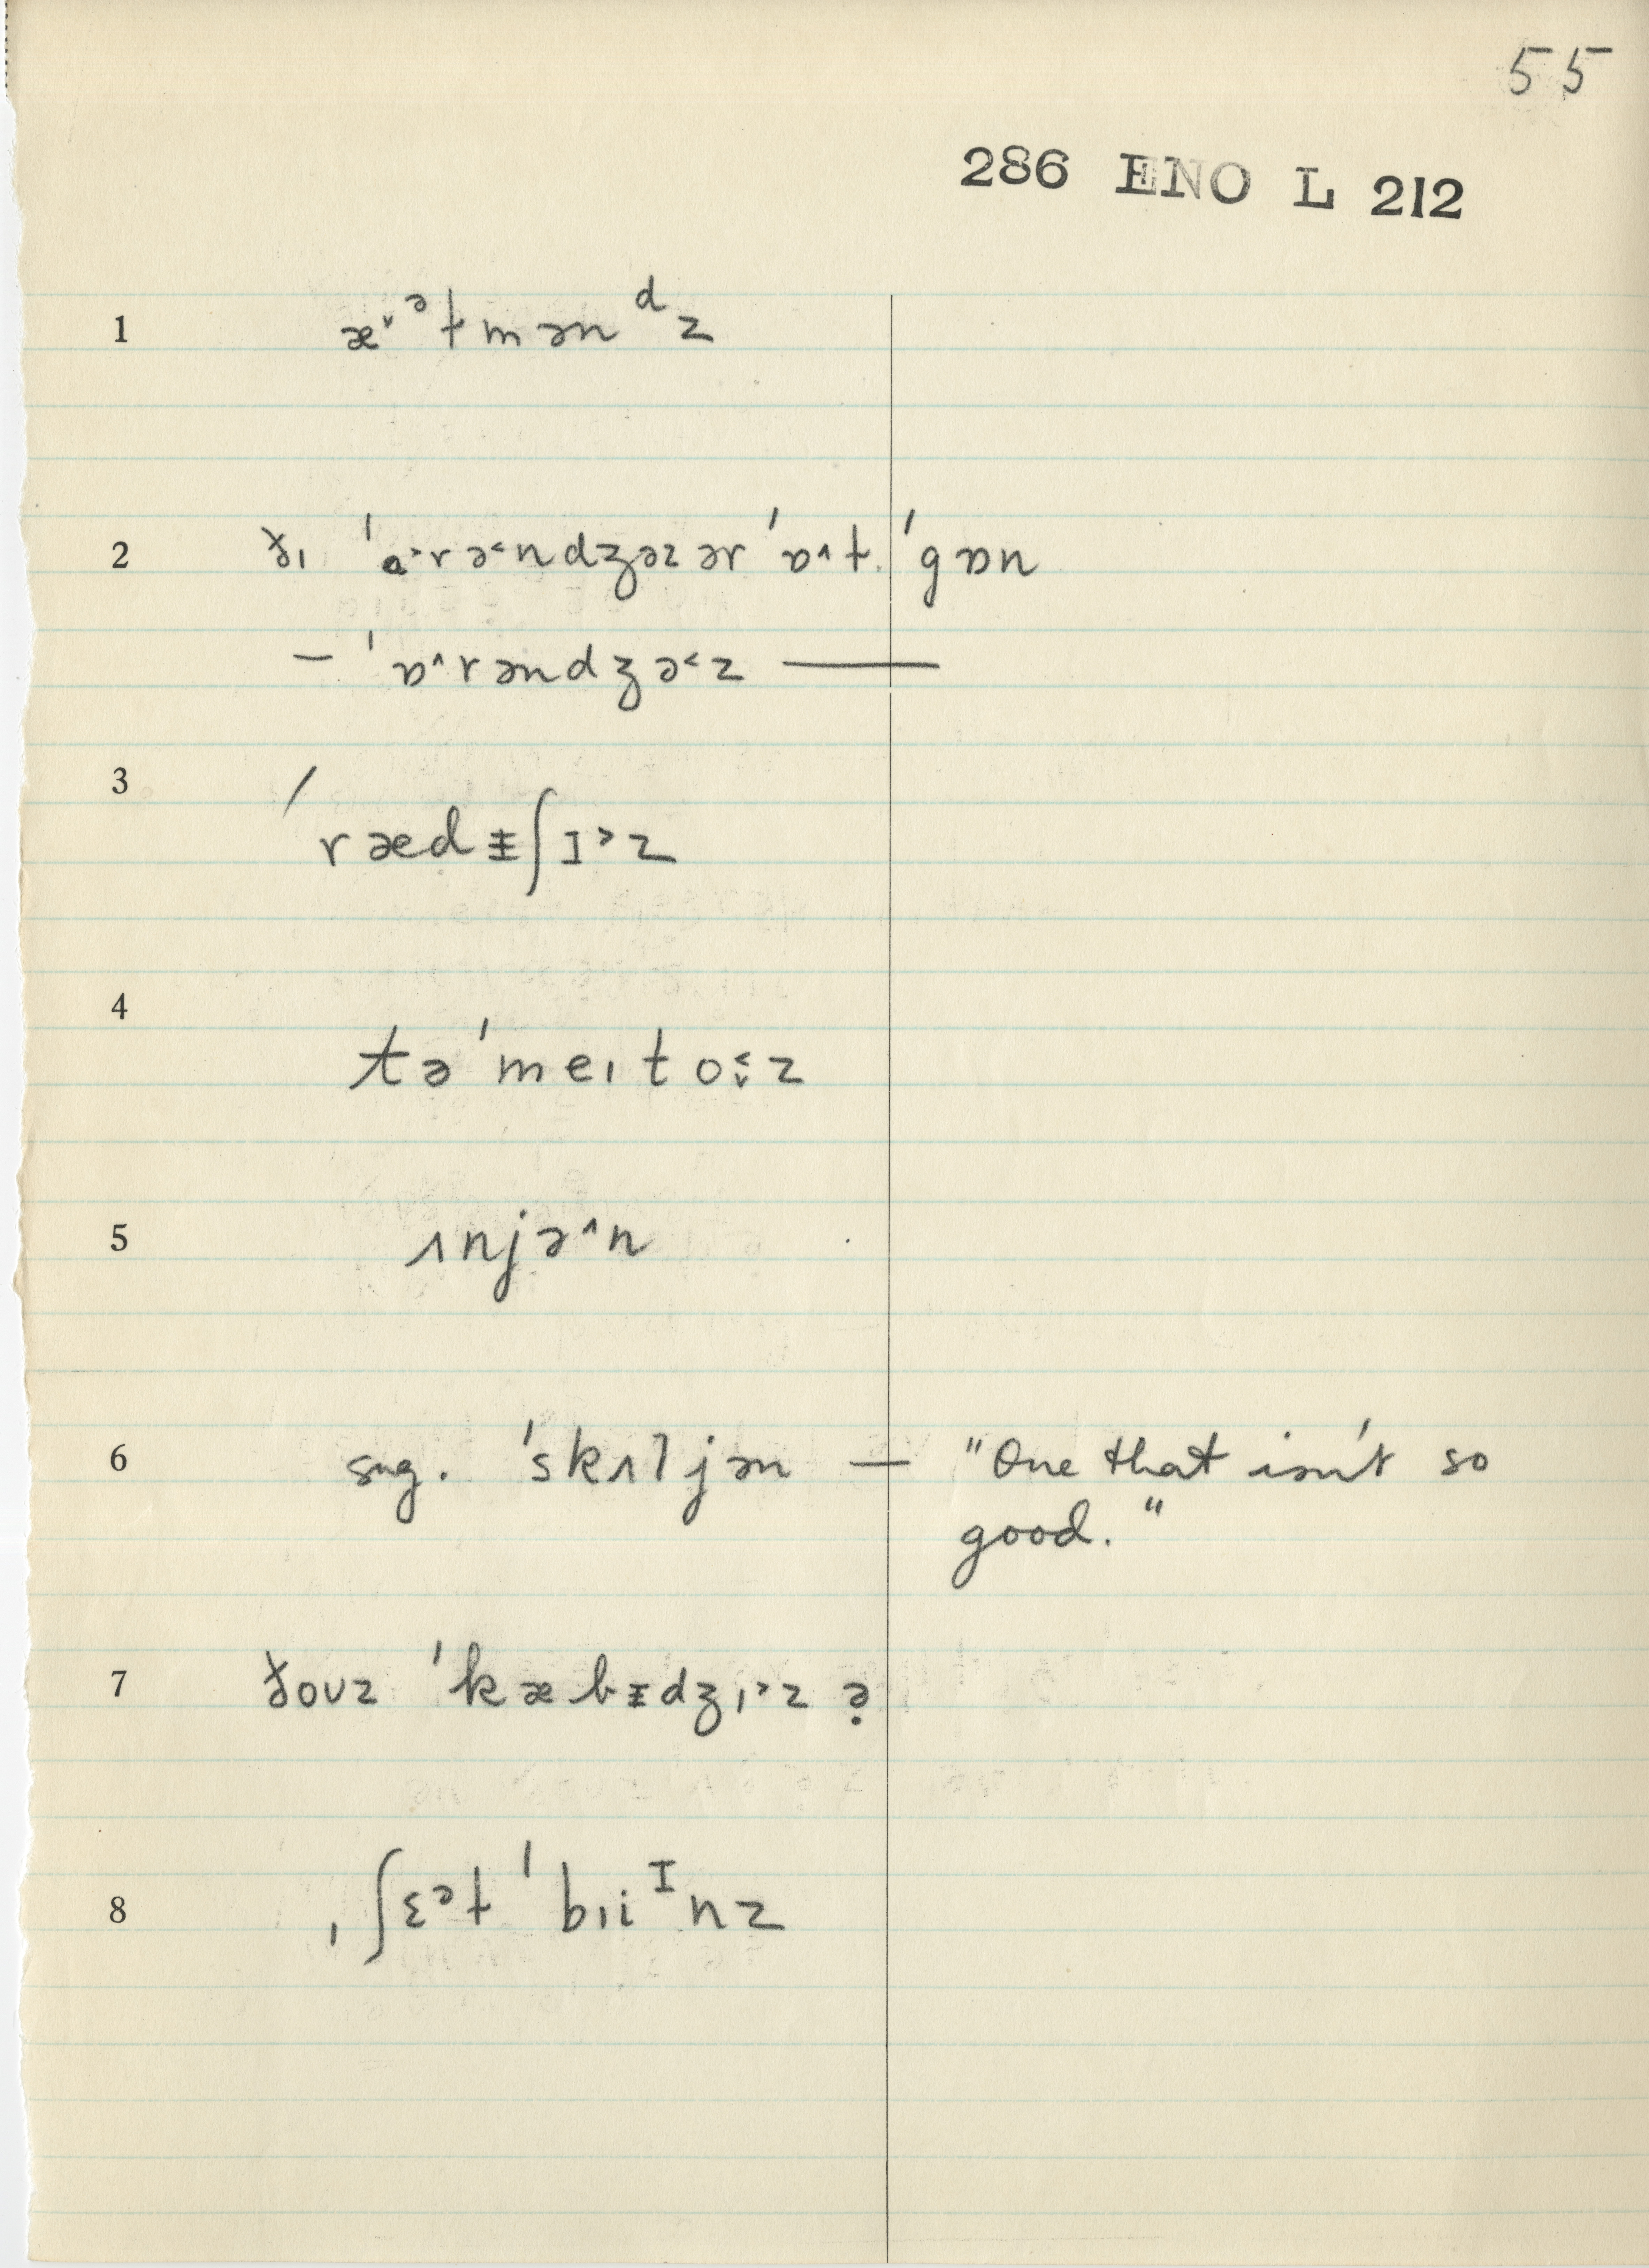 55
286 ENO L 212
1 æ˅ᵊt mənᵈz
2 ðɪ ˈɑ˃rə˂ndʒəz ər ˈɒ˄t ˈgɒn
— ˈɒ˄rəndʒə˂z —
3 ˈrædɪ̵ʃɪ˃z
4 təˈmeɪto˂˅z
5 ɪnjə˄n
6 sng. ˈskɪljən — "One that isn't so
good."
7 ðoʊz ˈkæbɪ̵dʒɪ˃z ə̣
8 ˌʃɛᵊt ˈbɪiᴵnz